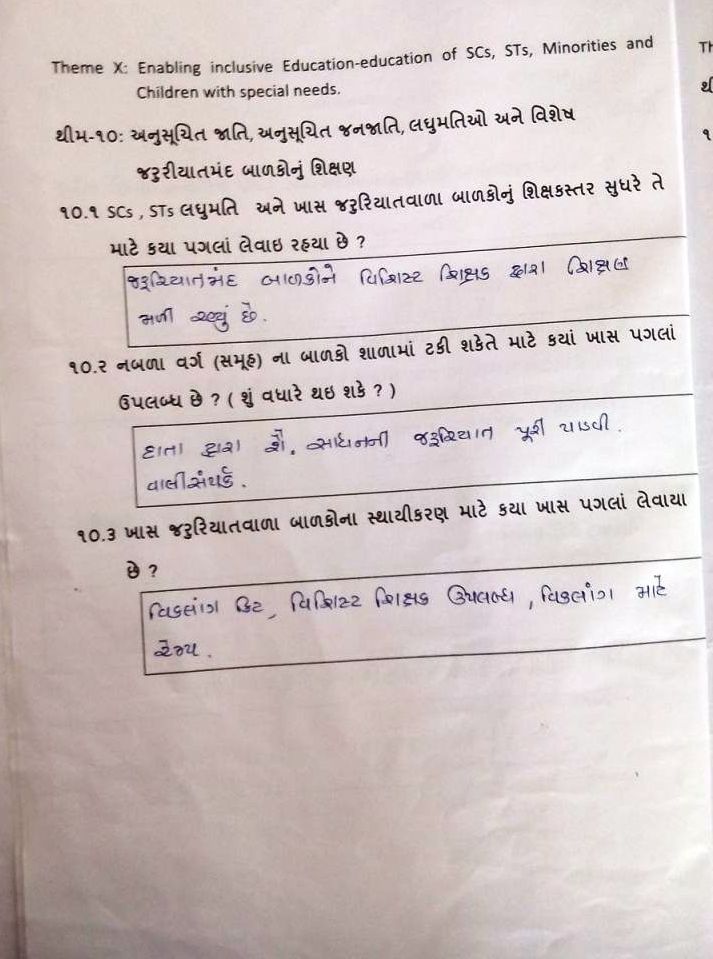 Theme X: Enabling inclusive Education-education of SCs, STs, Minorities and
Children with special needs.
થીમ-૧૦: અનુસૂચિત જાતિ, અનુસૂચિત જનજાતિ, લઘુમતિઓ અને વિશેષ
જરુરીયાતમંદ બાળકોનું શિક્ષણ
૧૦.૧ SCs , STs લઘુમતિ અને ખાસ જરુરિયાતવાળા બાળકોનું શિક્ષકસ્તર સુધરે તે
માટે કયા પગલાં લેવાઇ રહયા છે ?
જરૂરિયાતમંદ બાળકોને વિશિસ્ટ શિક્ષક દ્વારા શિક્ષણ
મળી રહ્યું છે.
૧૦.૨ નબળા વર્ગ (સમૂહ) ના બાળકો શાળામાં ટકી શકેતે માટે કયાં ખાસ પગલાં
ઉપલબ્ધ છે ? ( શું વધારે થઇ શકે ? )
દાતા દ્વારા શૈ. સાધનની જરૂરિયાત પૂરી પાડવી.
વાલીસંપર્ક.
૧૦.૩ ખાસ જરુરિયાતવાળા બાળકોના સ્થાયીકરણ માટે કયા ખાસ પગલાં લેવાયા
છે ?
વિકલાંગ કિટ, વિશિસ્ટ શિક્ષક ઉપલબ્ધ, વિકલાંગ માટે
રેમ્પ.
થી
૧